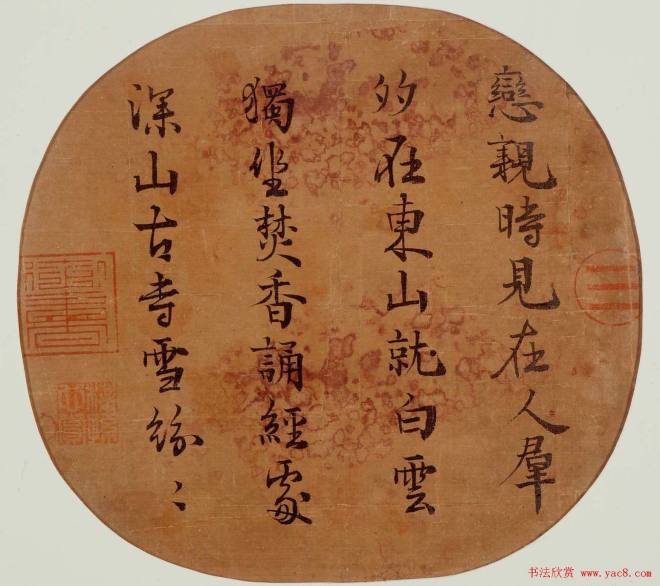 戀親時見在人羣
多在東山就白雲
獨坐焚香誦經處
深山古寺雪紛〻
书法欣赏 www.yac8.com